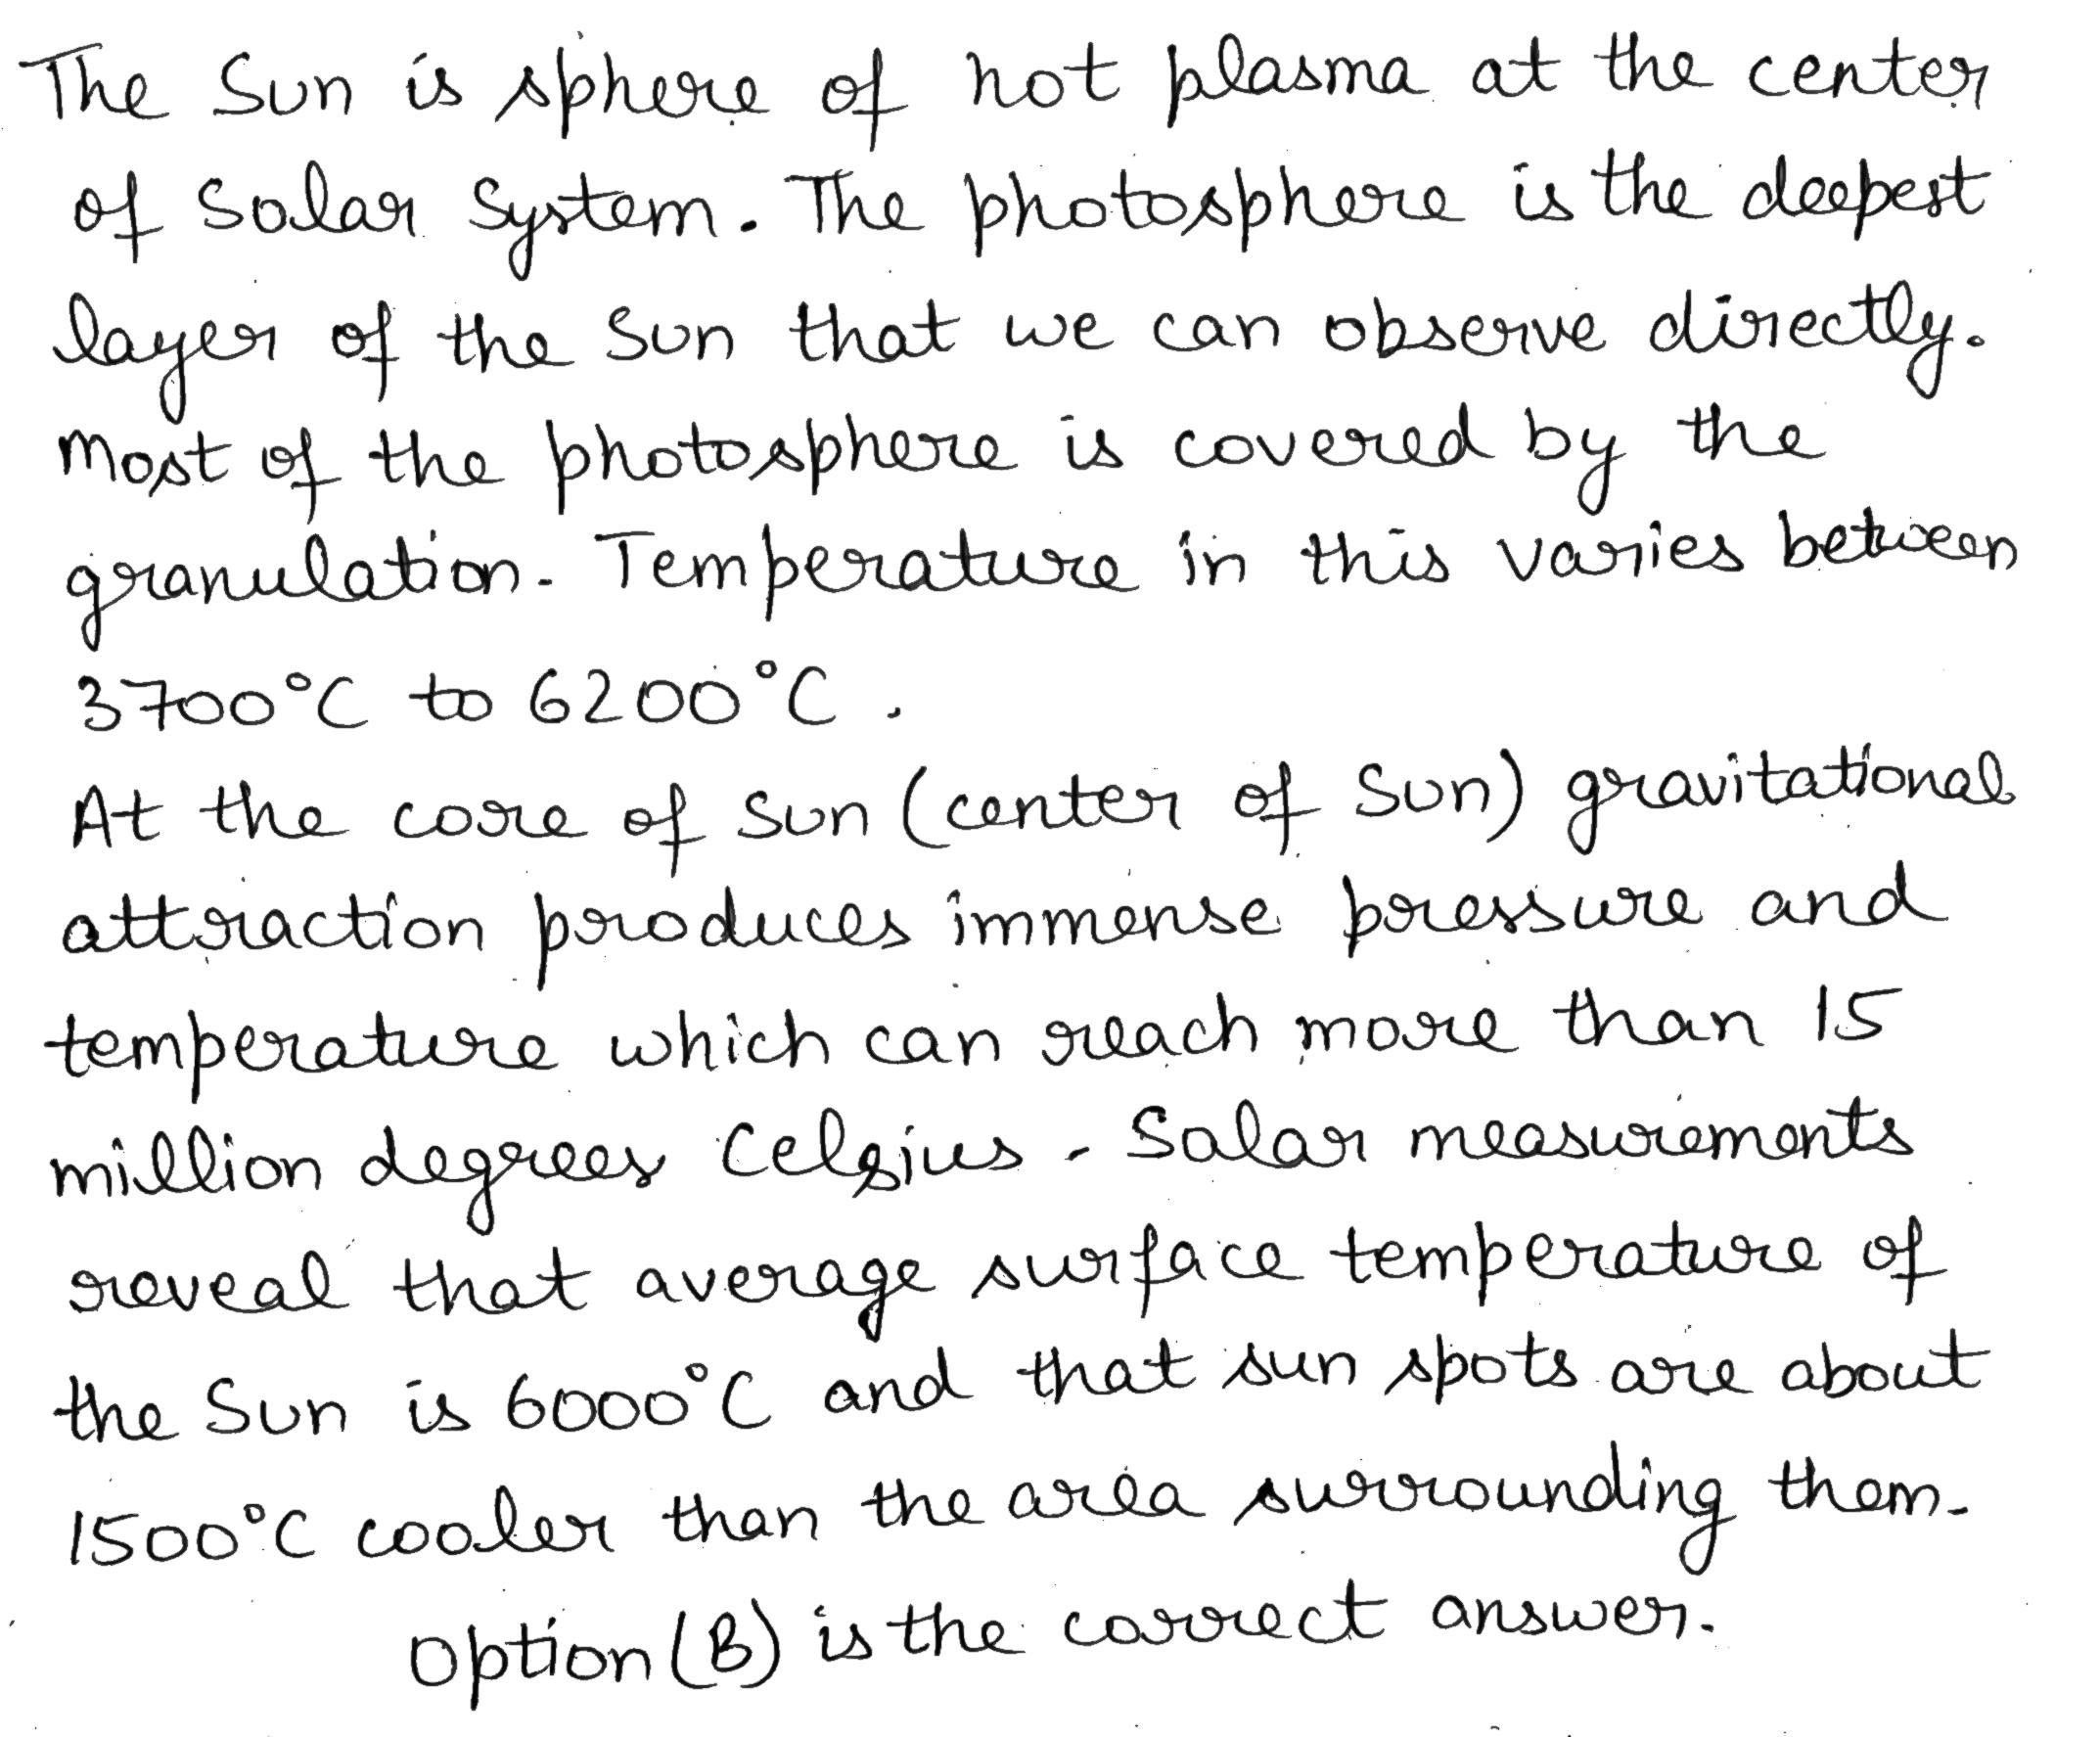 The Sun is sphere of hot plasma at the center
of Solar System. The photosphere is the deepest
layer of the Sun that we can observe directly.
Most of the photosphere is covered by the
granulation. Temperature in this varies between
3700°C to 6200°C.
At the core of Sun (center of Sun) gravitational
attraction produces immense pressure and
temperature which can reach more than 15
million degrees Celsius. Salar measurements
reveal that average surface temperature of
the Sun is 6000°C and that sun spots are about
1500°C cooler than the area surrounding them.
Option (B) is the correct answer.